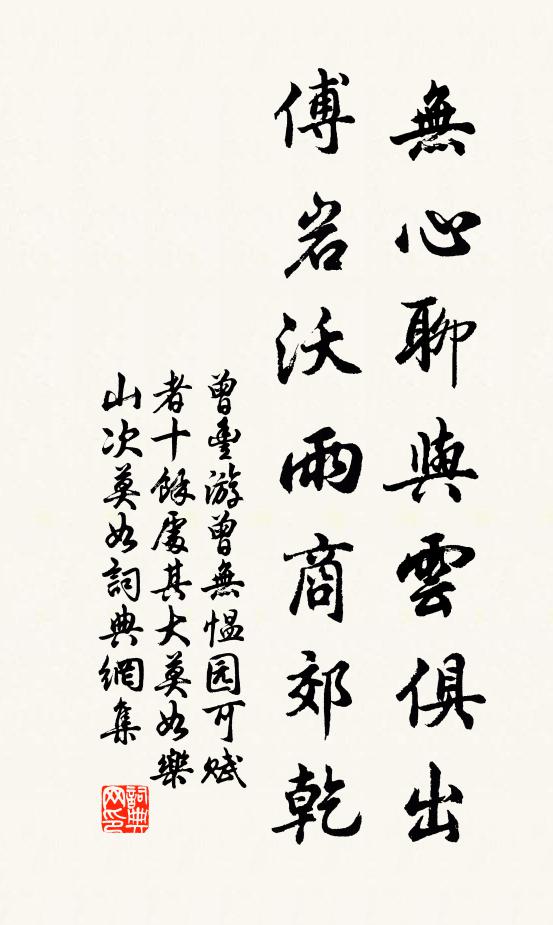 無心聊與雲俱出
傅岩沃雨商郊乾
曾豊游曾無愠园可赋
者十餘處其大莫如樂
山次莫如詞典網集
詞典网印